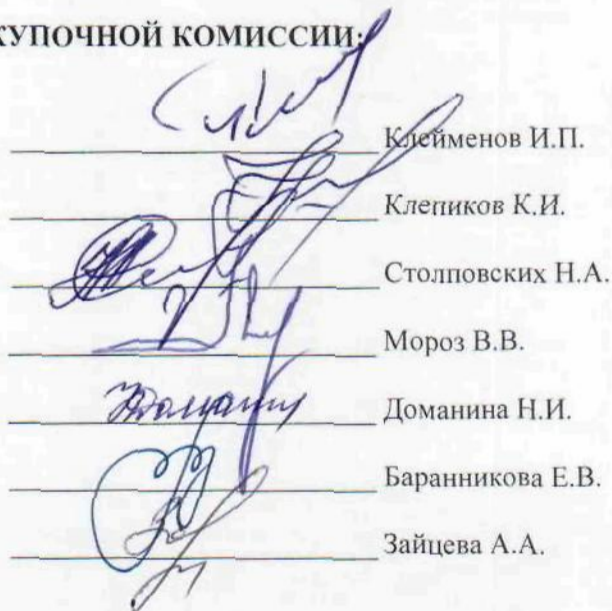 КУПОЧНОЙ КОМИССИИ:
Клейменов И.П.
Клепиков К.И.
Столповских Н.А.
Мороз В.В.
Доманина Н.И.
Баранникова Е.В.
Зайцева А.А.